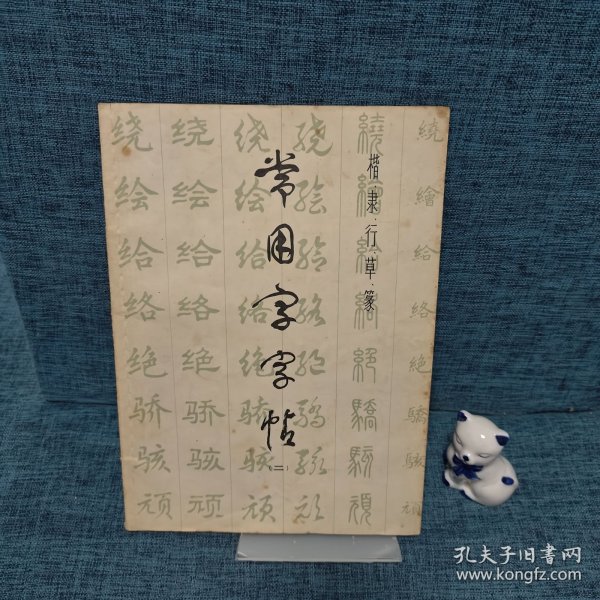 楷·隶·行·草·篆
常用字字帖
（二）
绕 绕 绕 绕 繞 繞
绘 绘 绘 绘 繪 繪
给 给 给 给 給 給
络 络 络 络 絡 絡
绝 绝 绝 绝 絕 絶
骄 骄 骄 骄 驕 驕
骇 骇 骇 骇 駭 駭
顽 顽 顽 顽 頑 頑
孔夫子旧书网
www.kongfz.com